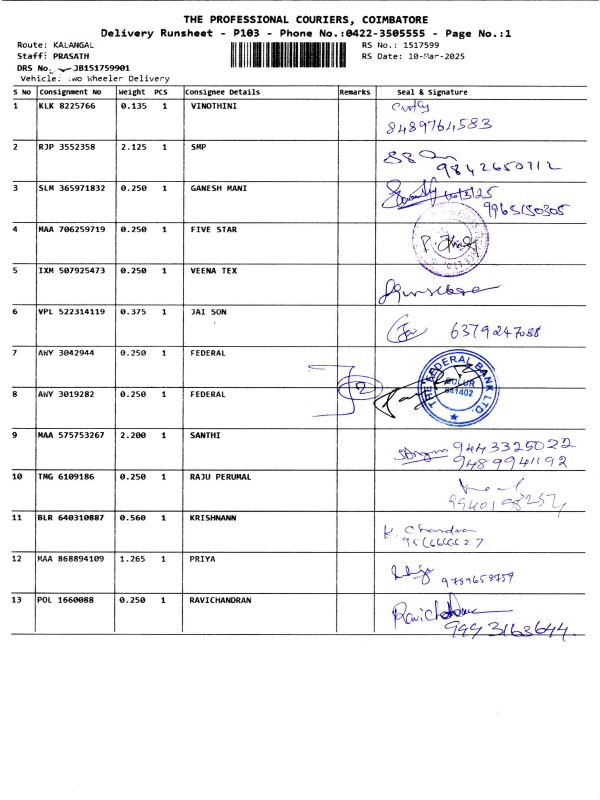 THE PROFESSIONAL COURIERS, COIMBATORE
Delivery Runsheet - P103 - Phone No.:0422-3505555 - Page No.:1
Route: KALANGAL
Staff: PRASATH
DRS No. JB151759901
Vehicle: Two Wheeler Delivery
RS No.: 1517599
RS Date: 10-Mar-2025
S No Consignment No Weight PCS Consignee Details Remarks Seal & Signature
1 KLK 8225766 0.135 1 VINOTHINI
8489764583
2 RJP 3552358 2.125 1 SMP
9842650712
3 SLM 365971832 0.250 1 GANESH MANI
9965150305
4 MAA 706259719 0.250 1 FIVE STAR
5 IXM 507925473 0.250 1 VEENA TEX
6 VPL 522314119 0.375 1 JAI SON
6379247088
7 AWY 3042944 0.250 1 FEDERAL
THE FEDERAL BANK LTD.
641402
2
8 AWY 3019282 0.250 1 FEDERAL
9 MAA 575753267 2.200 1 SANTHI
9443325022
9489941192
10 TMG 6109186 0.250 1 RAJU PERUMAL
11 BLR 640310887 0.560 1 KRISHNANN
K. Chandran
12 MAA 868894109 1.265 1 PRIYA
9789658759
13 POL 1660088 0.250 1 RAVICHANDRAN
9943163644